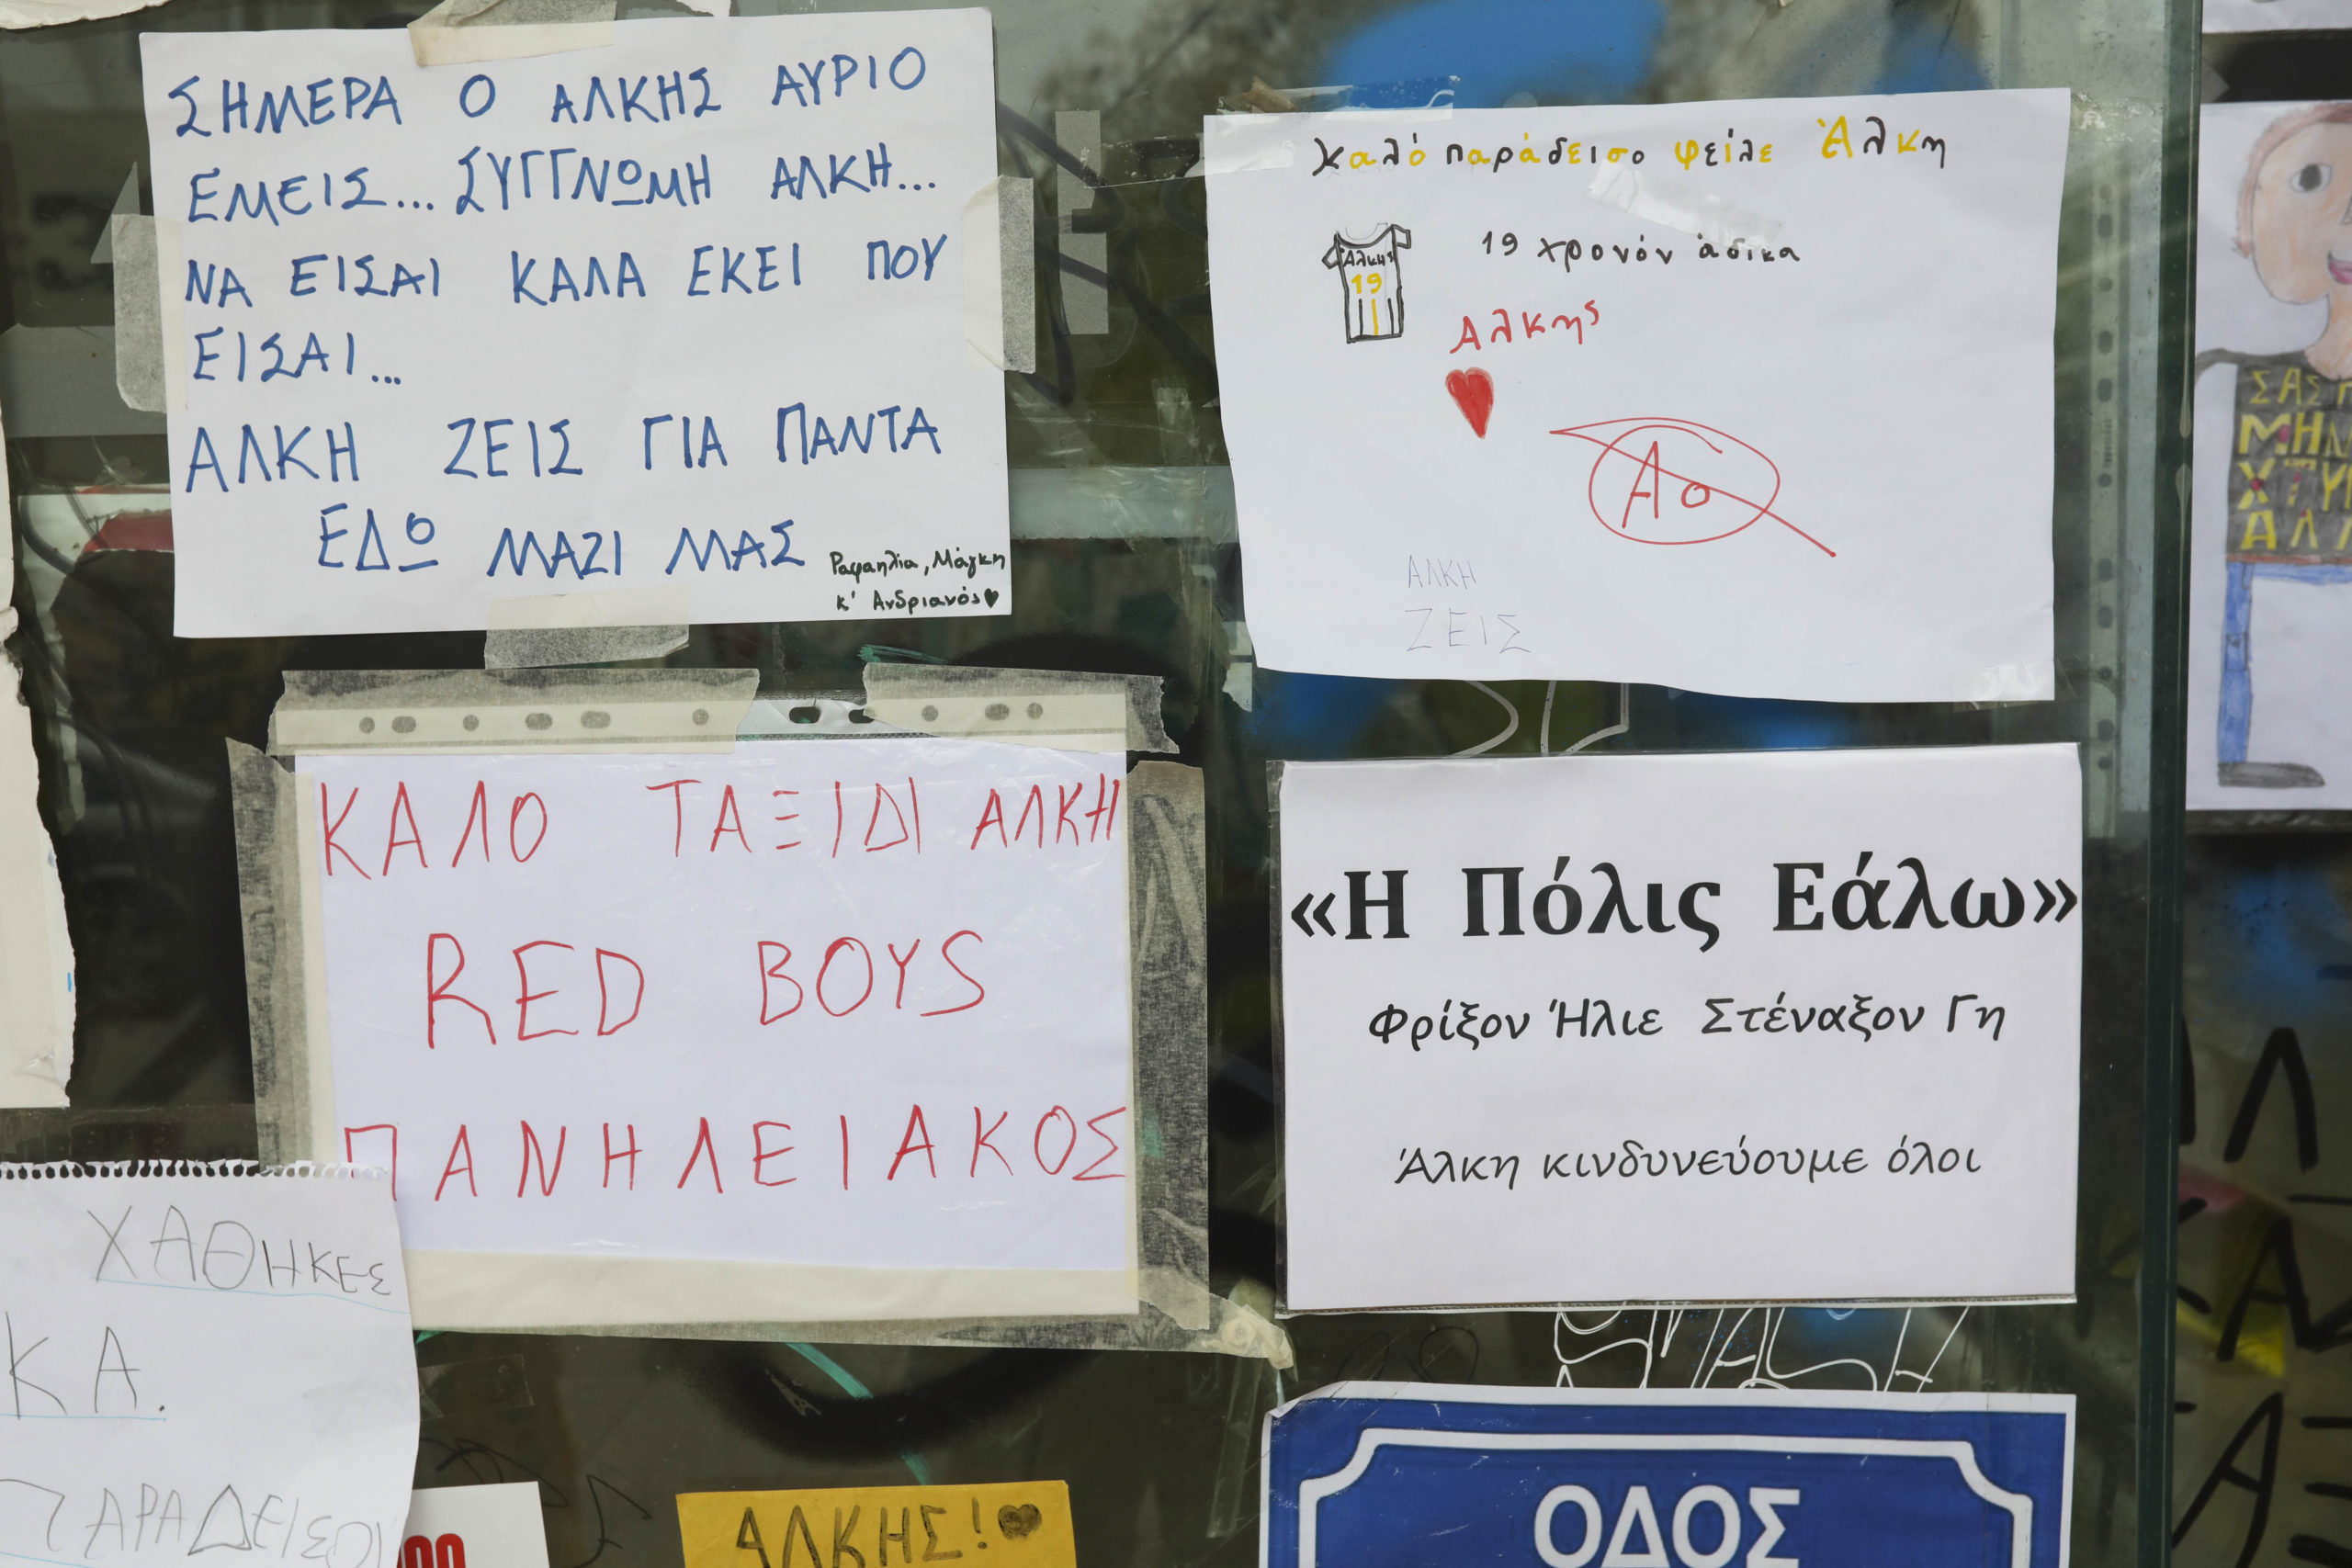 ΣΗΜΕΡΑ Ο ΑΛΚΗΣ ΑΥΡΙΟ
ΕΜΕΙΣ... ΣΥΓΓΝΩΜΗ ΑΛΚΗ...
ΝΑ ΕΙΣΑΙ ΚΑΛΑ ΕΚΕΙ ΠΟΥ
ΕΙΣΑΙ...
ΑΛΚΗ ΖΕΙΣ ΓΙΑ ΠΑΝΤΑ
ΕΔΩ ΜΑΖΙ ΜΑΣ
Ραφαηλία, Μάγκη
κ' Ανδριανός
Καλό παράδεισο φείλε Άλκη
Άλκης
19
19 χρονόν άδικα
Αλκης
Αο
ΑΛΚΗ
ΖΕΙΣ
ΣΑΣ
ΜΗΝ
ΧΤΥ
ΑΛ
ΚΑΛΟ ΤΑΞΙΔΙ ΑΛΚΗ
RED BOYS
ΠΑΝΗΛΕΙΑΚΟΣ
«Η Πόλις Εάλω»
Φρίξον Ήλιε Στέναξον Γη
Άλκη κινδυνεύουμε όλοι
ΧΑΘΗΚΕΣ
ΚΑ.
ΠΑΡΑΔΕΙΣΟ
ΑΛΚΗΣ!
ΟΔΟΣ